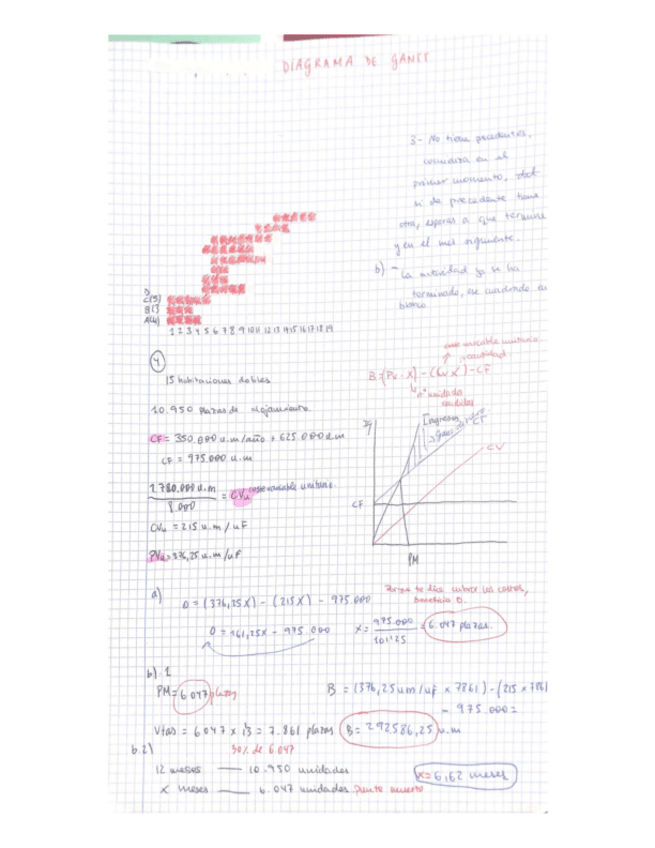 DIAGRAMA DE GANTT
3- No tiene precedentes,
comienza en el
primer momento,
si de precedente tiene
otra, esperas a que termine
y en el mes siguiente.
b) - La actividad ya se ha
terminado, ese cuadrado en
blanco
D
C(5)
B(3)
A(4)
1 2 3 4 5 6 7 8 9 10 11 12 13 14 15 16 17 18 19
4
15 habitaciones dobles
10.950 plazas de alojamiento.
CF = 350.000 u.m/año + 625.000 u.m
CF = 975.000 u.m
1.720.000 u.m / 8.000 = CVu coste variable unitario.
CVu = 215 u.m/uF
PVu = 376,25 u.m/uF
coste variable unitario
cantidad
B = (Pv · X) - (CVu X) - CF
nº unidades
vendidas
Ingresos
CT
CV
CF
PM
a)
0 = (376,25X) - (215X) - 975.000
0 = 161,25X - 975.000
te dice cubrir los costes,
beneficio 0.
X = 975.000 / 161'25 = 6.047 plazas.
b) 1
PM = 6.047 plazas
B = (376,25 um/uf x 7861) - (215 x 7861
- 975.000 =
Vtas = 6.047 x 1'3 = 7.861 plazas
B = 292586,25 u.m
30% de 6.047
b.2)
12 meses — 10.950 unidades
X meses — 6.047 unidades Punto muerto
X = 6,62 meses